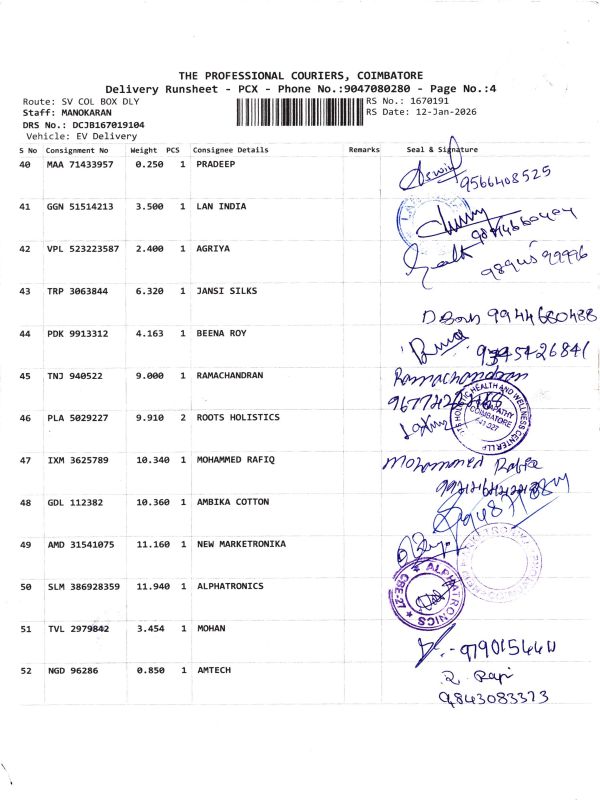 THE PROFESSIONAL COURIERS, COIMBATORE
Delivery Runsheet - PCX - Phone No.:9047080280 - Page No.:4
Route: SV COL BOX DLY
RS No.: 1670191
Staff: MANOKARAN
RS Date: 12-Jan-2026
DRS No.: DCJB167019104
Vehicle: EV Delivery
S No Consignment No Weight PCS Consignee Details Remarks Seal & Signature
40 MAA 71433957 0.250 1 PRADEEP
9566408525
41 GGN 51514213 3.500 1 LAN INDIA
42 VPL 523223587 2.400 1 AGRIYA
43 TRP 3063844 6.320 1 JANSI SILKS
9944680488
44 PDK 9913312 4.163 1 BEENA ROY
45 TNJ 940522 9.000 1 RAMACHANDRAN
Ramachandran
46 PLA 5029227 9.910 2 ROOTS HOLISTICS
HEALTH AND WELLNESS CENTER LLP
COIMBATORE
47 IXM 3625789 10.340 1 MOHAMMED RAFIQ
Mohammed
48 GDL 112382 10.360 1 AMBIKA COTTON
49 AMD 31541075 11.160 1 NEW MARKETRONIKA
50 SLM 386928359 11.940 1 ALPHATRONICS
★ ALPHATRONICS ★ CBE-27
51 TVL 2979842 3.454 1 MOHAN
52 NGD 96286 0.850 1 AMTECH
9843083323